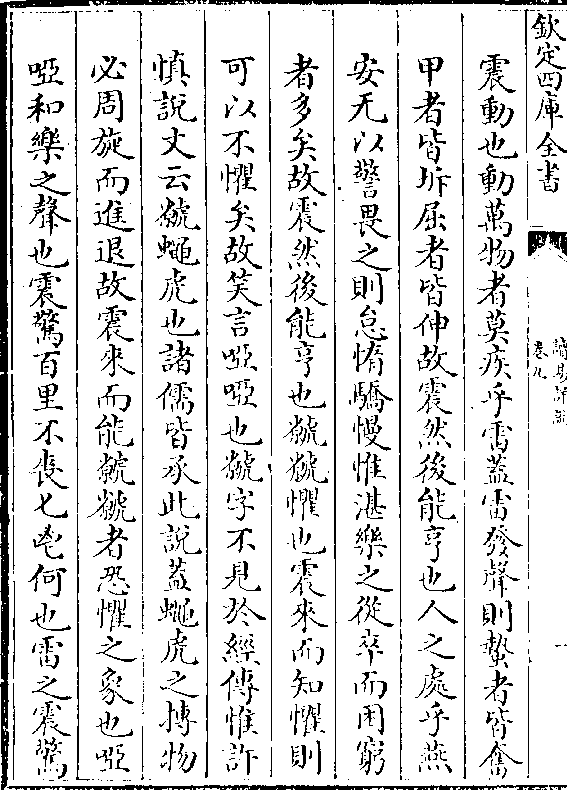 欽定四庫全書
讀易詳說
卷九
震動也動萬物者莫疾乎雷蓋雷發聲則蟄者皆奮
甲者皆坼屈者皆伸故震然後能亨也人之處乎燕
安无以警畏之則怠惰驕慢惟湛樂之從卒而困窮
者多矣故震然後能亨也虩虩懼也震來而知懼則
可以不懼矣故笑言啞啞也虩字不見於經傳惟許
慎說文云虩蠅虎也諸儒皆承此說蓋蠅虎之搏物
必周旋而進退故震來而能虩虩者恐懼之象也啞
啞和樂之聲也震驚百里不喪匕鬯何也雷之震驚